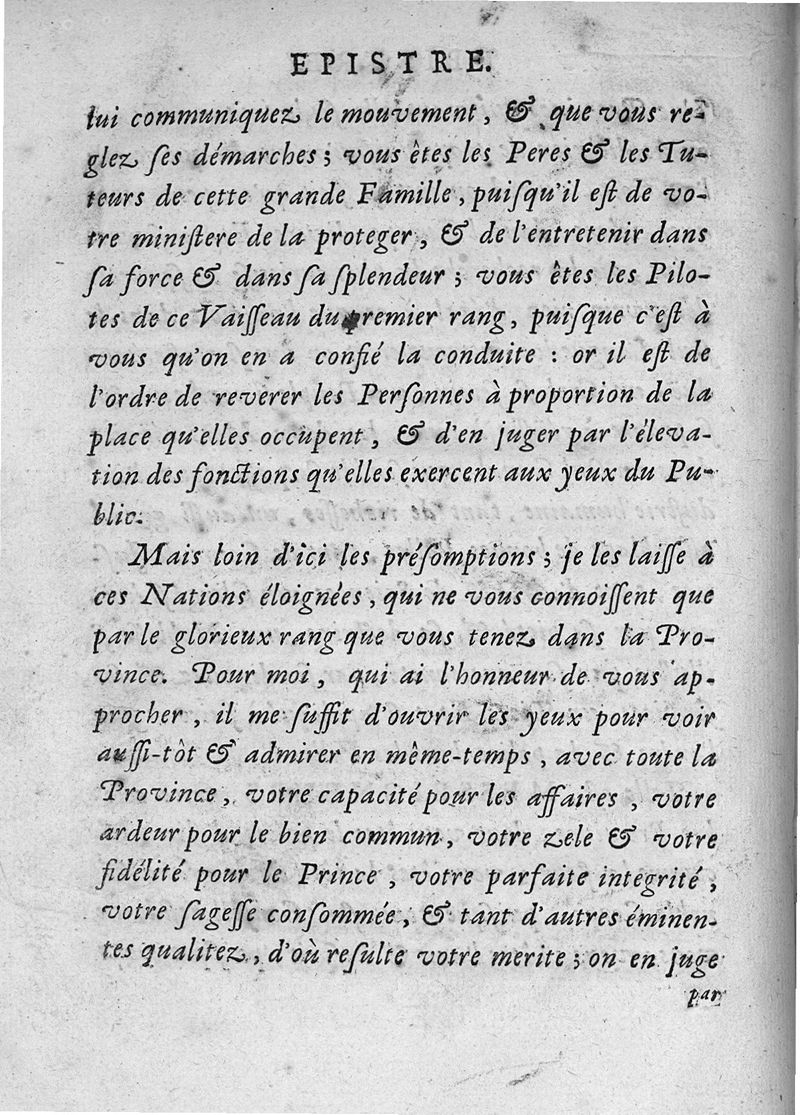 EPISTRE.
lui communiquez le mouvement, & que vous re-
glez ſes démarches ; vous êtes les Peres & les Tu-
teurs de cette grande Famille, puiſqu'il eſt de vo-
tre miniſtere de la proteger, & de l'entretenir dans
ſa force & dans ſa ſplendeur ; vous êtes les Pilo-
tes de ce Vaiſſeau du premier rang, puiſque c'eſt à
vous qu'on en a confié la conduite : or il eſt de
l'ordre de reverer les Perſonnes à proportion de la
place qu'elles occupent, & d'en juger par l'éleva-
tion des fonctions qu'elles exercent aux yeux du Pu-
blic.
Mais loin d'ici les préſomptions ; je les laiſſe à
ces Nations éloignées, qui ne vous connoiſſent que
par le glorieux rang que vous tenez dans la Pro-
vince. Pour moi, qui ai l'honneur de vous ap-
procher, il me ſuffit d'ouvrir les yeux pour voir
auſſi-tôt & admirer en même-temps, avec toute la
Province, votre capacité pour les affaires, votre
ardeur pour le bien commun, votre zele & votre
fidélité pour le Prince, votre parfaite integrité,
votre ſageſſe conſommée, & tant d'autres éminen-
tes qualitez, d'où reſulte votre merite ; on en juge
par